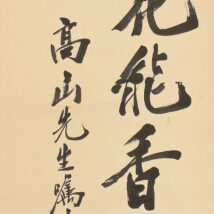 花能香
高山先生嘱